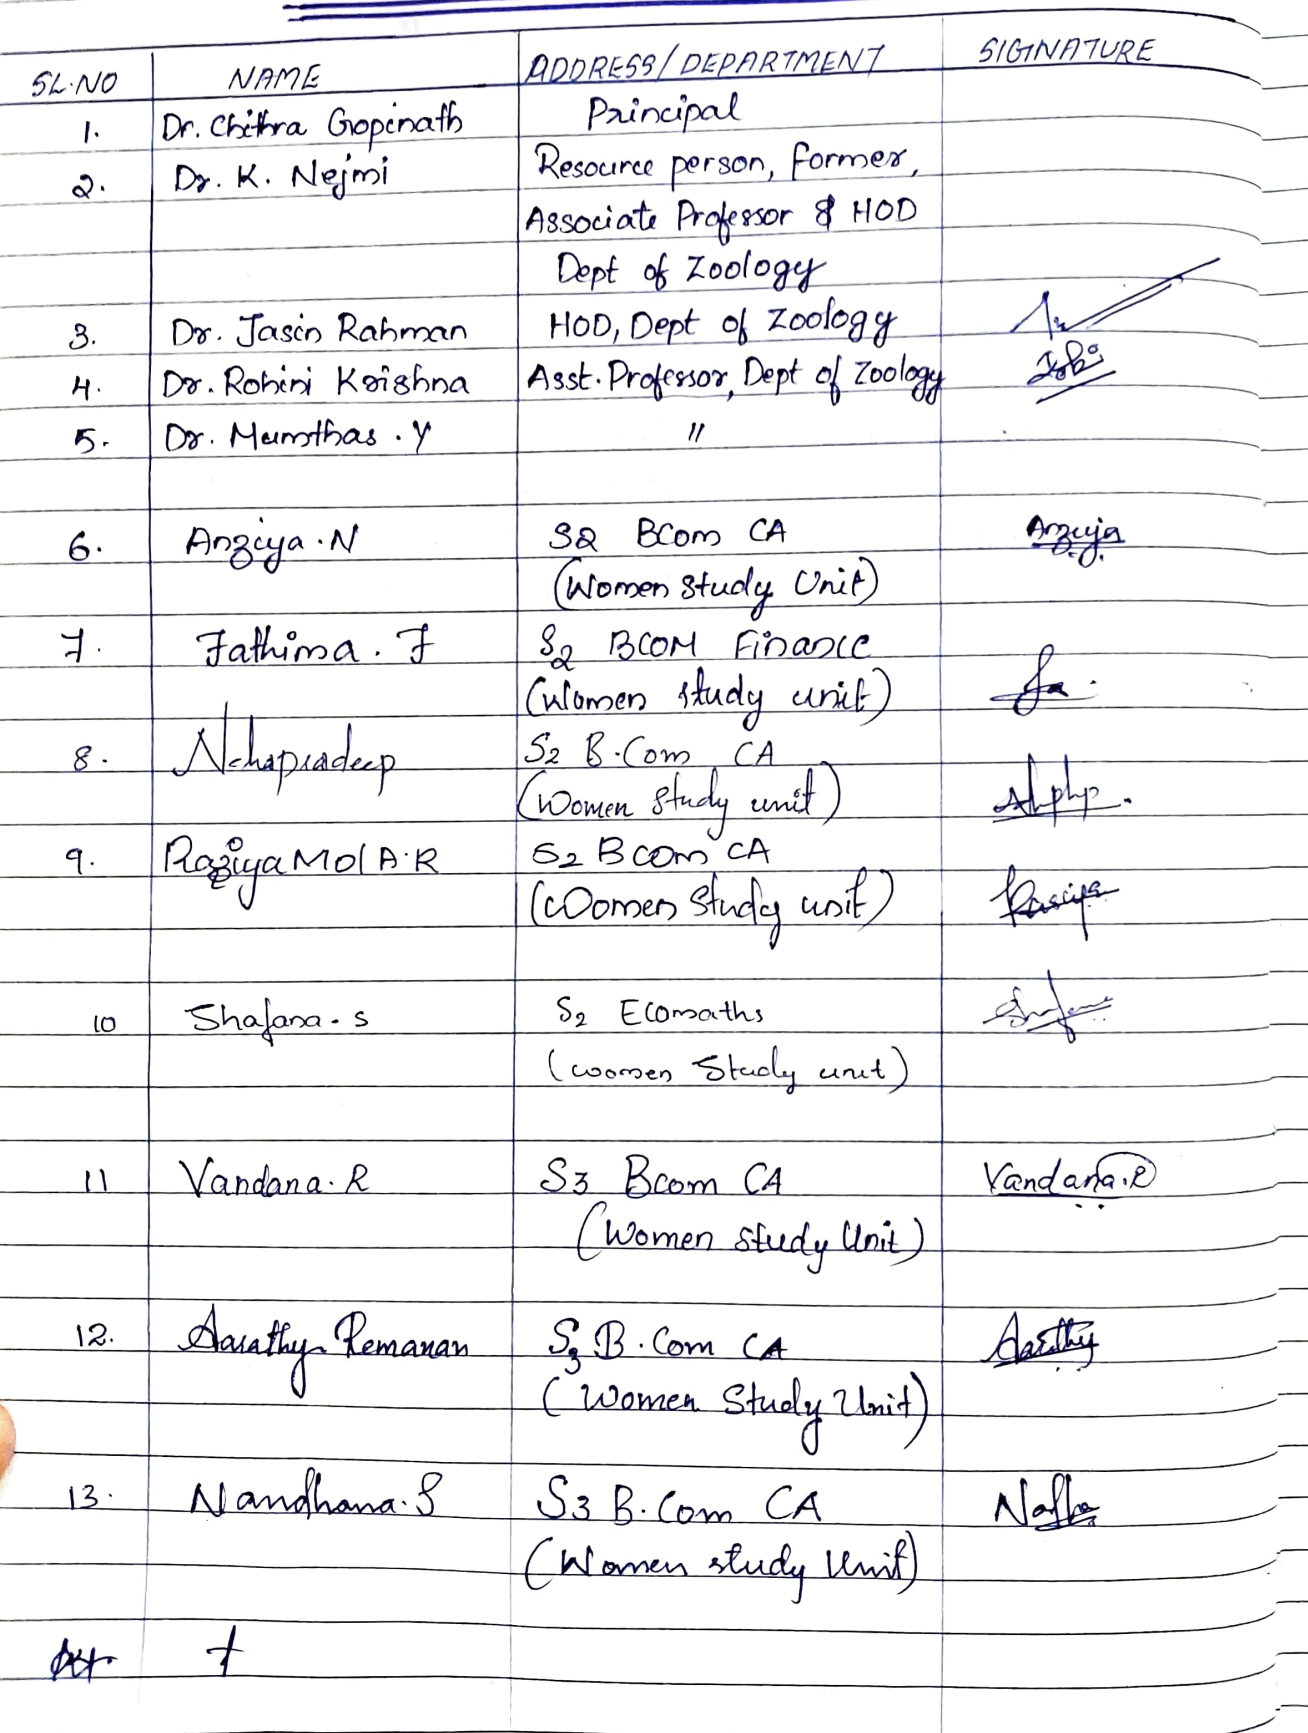 SL.NO NAME ADDRESS/DEPARTMENT SIGINATURE
1. Dr. Chithra Gopinath Principal
2. Dr. K. Nejmi Resource person, former,
Associate Professor & HOD
Dept of Zoology
3. Dr. Jasin Rahman HOD, Dept of Zoology
4. Dr. Rohini Krishna Asst. Professor, Dept of Zoology
5. Dr. Mumthas . Y "
6. Anziya . N S2 BCom CA
(Women Study Unit)
7. Fathima . F S2 BCOM Finance
(Women study unit)
8. Nehapradeep S2 B.Com CA
(Women Study unit)
9. Raziya Mol A.R S2 BCom CA
(Women Study unit)
10 Shafana . s S2 Ecomaths
(women Study unit)
11 Vandana . R S3 Bcom CA Vandana.R
(Women Study Unit)
12. Aarathy Remanan S3 B.Com CA Aarathy
(Women Study Unit)
13. Nandhana . S S3 B.Com CA
(Women study Unit)